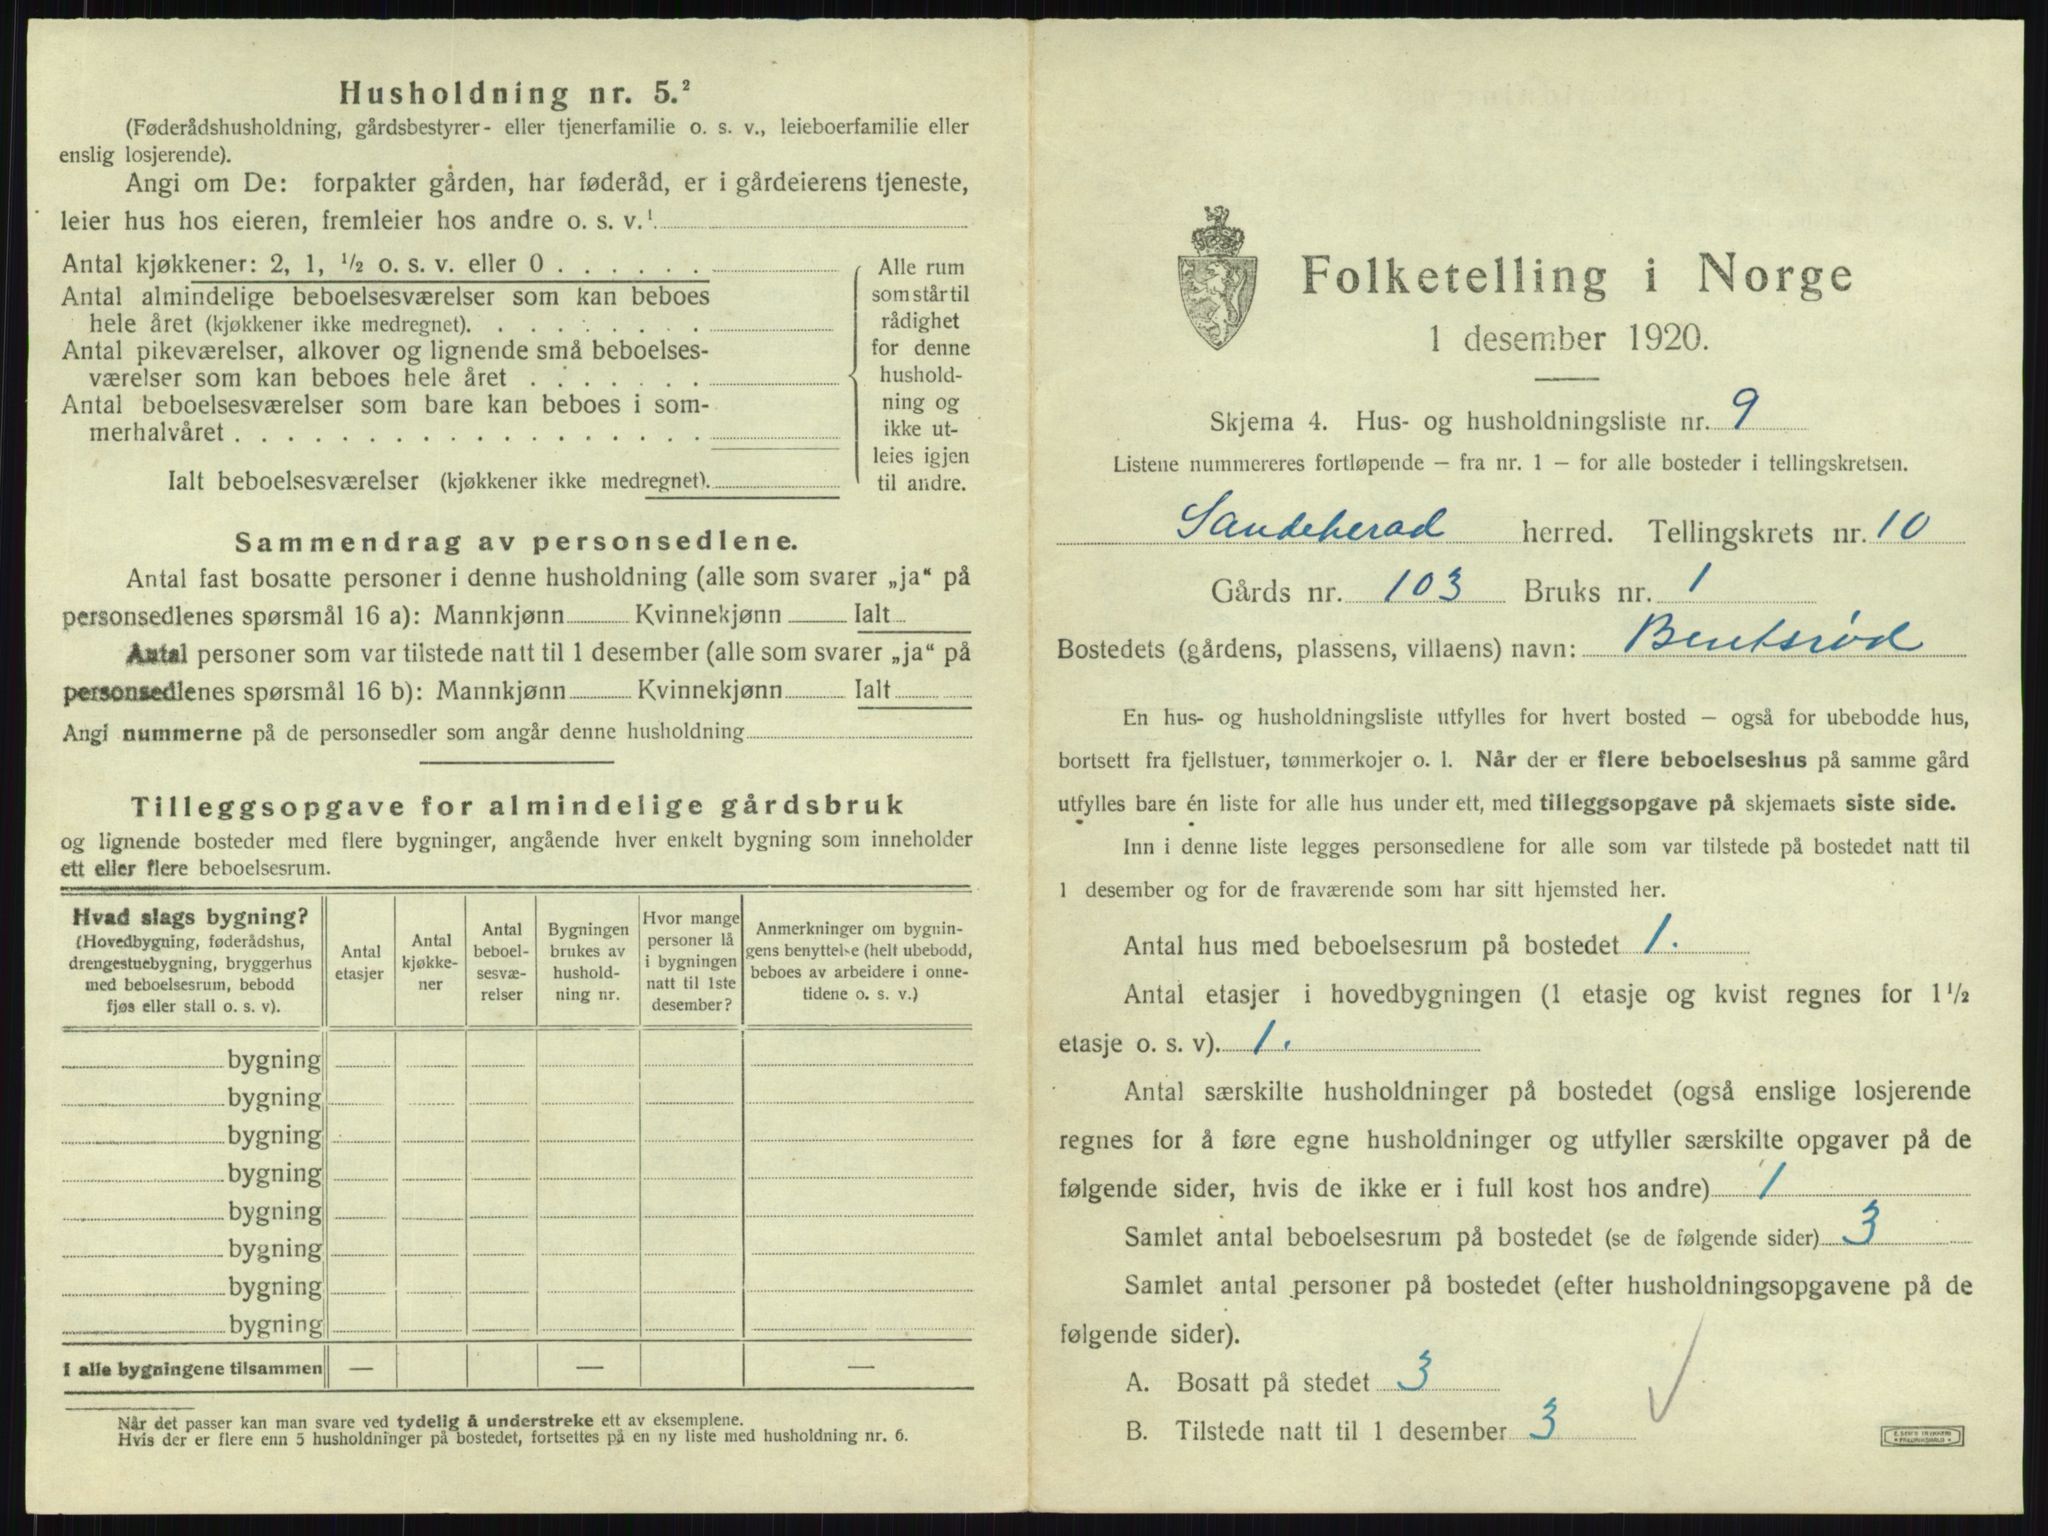 Husholdning nr. 5.²
(Føderådshusholdning, gårdsbestyrer- eller tjenerfamilie o. s. v., leieboerfamilie eller
enslig losjerende).
Angi om De: forpakter gården, har føderåd, er i gårdeierens tjeneste,
leier hus hos eieren, fremleier hos andre o. s. v.¹
Antal kjøkkener: 2, 1, ½ o. s. v. eller 0 . . . . . .
Antal almindelige beboelsesværelser som kan beboes
hele året (kjøkkener ikke medregnet). . . . . . . . .
Antal pikeværelser, alkover og lignende små beboelses-
værelser som kan beboes hele året . . . . . . .
Antal beboelsesværelser som bare kan beboes i som-
merhalvåret . . . . . . . . . . . . . . . . . .
Ialt beboelsesværelser (kjøkkener ikke medregnet).
Alle rum
som står til
rådighet
for denne
hushold-
ning og
ikke ut-
leies igjen
til andre.
Sammendrag av personsedlene.
Antal fast bosatte personer i denne husholdning (alle som svarer „ja“ på
personsedlenes spørsmål 16 a): Mannkjønn Kvinnekjønn Ialt
Antal personer som var tilstede natt til 1 desember (alle som svarer „ja“ på
personsedlenes spørsmål 16 b): Mannkjønn Kvinnekjønn Ialt
Angi nummerne på de personsedler som angår denne husholdning
Tilleggsopgave for almindelige gårdsbruk
og lignende bosteder med flere bygninger, angående hver enkelt bygning som inneholder
ett eller flere beboelsesrum.
Hvad slags bygning?
(Hovedbygning, føderådshus,
drengestuebygning, bryggerhus
med beboelsesrum, bebodd
fjøs eller stall o. s. v).
Antal
etasjer
Antal
kjøkke-
ner
Antal
beboel-
sesvæ-
relser
Bygningen
brukes av
hushold-
ning nr.
Hvor mange
personer lå
i bygningen
natt til 1ste
desember?
Anmerkninger om bygnin-
gens benyttelse (helt ubebodd,
beboes av arbeidere i onne-
tidene o. s. v.)
bygning
bygning
bygning
bygning
bygning
bygning
bygning
bygning
I alle bygningene tilsammen — — —
Når det passer kan man svare ved tydelig å understreke ett av eksemplene.
Hvis der er flere enn 5 husholdninger på bostedet, fortsettes på en ny liste med husholdning nr. 6.
Folketelling i Norge
1 desember 1920.
Skjema 4. Hus- og husholdningsliste nr. 9
Listene nummereres fortløpende – fra nr. 1 – for alle bosteder i tellingskretsen.
Sandeherad herred. Tellingskrets nr. 10
Gårds nr. 103 Bruks nr. 1
Bostedets (gårdens, plassens, villaens) navn: Bentsrød
En hus- og husholdningsliste utfylles for hvert bosted – også for ubebodde hus,
bortsett fra fjellstuer, tømmerkojer o. l. Når der er flere beboelseshus på samme gård
utfylles bare én liste for alle hus under ett, med tilleggsopgave på skjemaets siste side.
Inn i denne liste legges personsedlene for alle som var tilstede på bostedet natt til
1 desember og for de fraværende som har sitt hjemsted her.
Antal hus med beboelsesrum på bostedet 1.
Antal etasjer i hovedbygningen (1 etasje og kvist regnes for 1½
etasje o. s. v). 1.
Antal særskilte husholdninger på bostedet (også enslige losjerende
regnes for å føre egne husholdninger og utfyller særskilte opgaver på de
følgende sider, hvis de ikke er i full kost hos andre) 1
Samlet antal beboelsesrum på bostedet (se de følgende sider) 3
Samlet antal personer på bostedet (efter husholdningsopgavene på de
følgende sider).
A. Bosatt på stedet 3
B. Tilstede natt til 1 desember 3